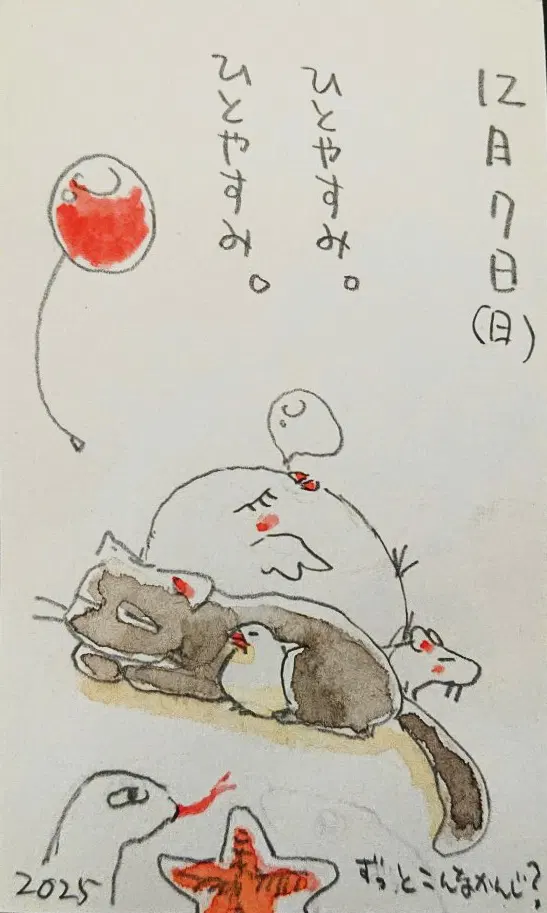 12月7日(日)
ひとやすみ。
ひとやすみ。
ずっとこんなかんじ?
2025